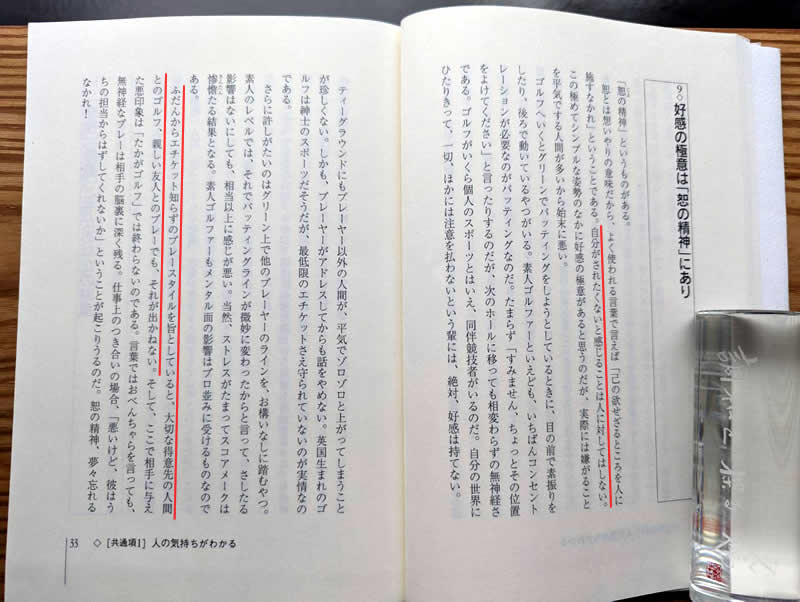 9◇ 好感の極意は「恕の精神」にあり
「恕の精神」というものがある。
恕とは思いやりの意味だから、よく使われる言葉で言えば「己の欲せざるところを人に
施すなかれ」ということである。自分がされたくないと感じることは人に対してはしない。
この極めてシンプルな姿勢のなかに好感の極意があると思うのだが、実際には嫌がること
を平気でする人間が多いから始末に悪い。
ゴルフへいくとグリーンでパッティングをしようとしているときに、目の前で素振りを
したり、後ろで動いているやつがいる。素人ゴルファーといえども、いちばんコンセント
レーションが必要なのがパッティングなのだ。たまらず「すみません、ちょっとその位置
をよけてください」と言ったりするのだが、次のホールに移っても相変わらずの無神経さ
である。ゴルフがいくら個人のスポーツとはいえ、同伴競技者がいるのだ。自分の世界に
ひたりきって、一切、ほかには注意を払わないという輩には、絶対、好感は持てない。
ティーグラウンドにもプレーヤー以外の人間が、平気でゾロゾロと上がってしまうこと
が珍しくない。しかも、プレーヤーがアドレスしてからも話をやめない。英国生まれのゴ
ルフは紳士のスポーツだそうだが、最低限のエチケットさえ守られていないのが実情なの
である。
さらに許しがたいのはグリーン上で他のプレーヤーのラインを、お構いなしに踏むやつ。
素人のレベルでは、それでパッティングラインが微妙に変わったからと言って、さしたる
影響はないにしても、相当以上に感じが悪い。当然、ストレスがたまってスコアメークは
惨憺たる結果となる。素人ゴルファーもメンタル面の影響はプロ並みに受けるものなので
ある。
ふだんからエチケット知らずのプレースタイルを旨としていると、大切な得意先の人間
とのゴルフ、親しい友人とのプレーでも、それが出かねない。そして、ここで相手に与え
た悪印象は「たかがゴルフ」では終わらないのである。言葉ではおべんちゃらを言っても、
無神経なプレーは相手の脳裏に深く残る。仕事上のつき合いの場合、「悪いけど、彼はう
ちの担当からはずしてくれないか」ということが起こりうるのだ。恕の精神、夢々忘れる
なかれ！
33 ◇［共通項1］ 人の気持ちがわかる